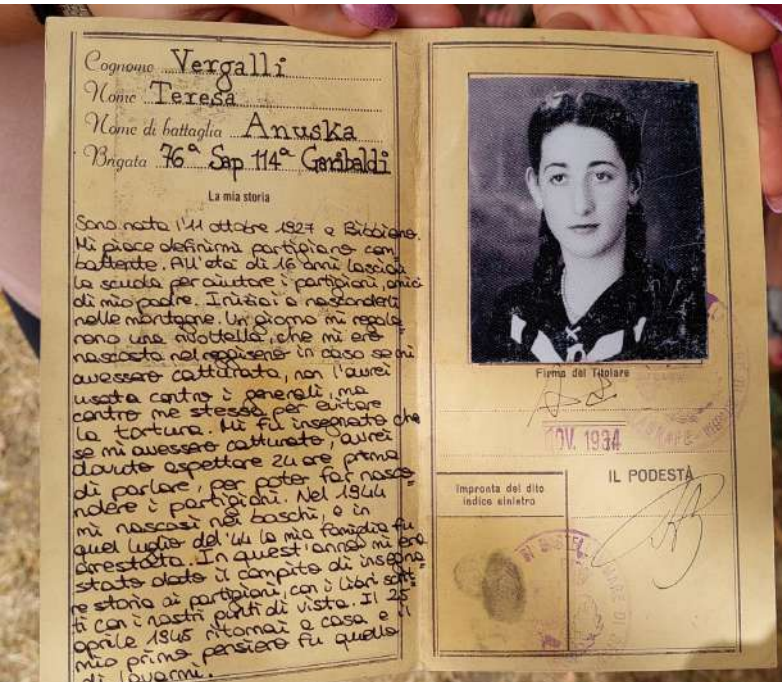 Cognome Vergalli
Nome Teresa
Nome di battaglia Anuska
Brigata 76ª Sap 114ª Garibaldi
La mia storia
Sono nata l'11 ottobre 1927 a Bibbiano.
Mi piace definirmi partigiana com
battente. All'età di 16 anni lasciai
la scuola per aiutare i partigiani, amici
di mio padre. Iniziai a nasconderli
nelle montagne. Un giorno mi regala-
rono una rivoltella, che mi ero
nascosta nel reggiseno in caso se mi
avessero catturata, non l'avrei
usata contro i generali, ma
contro me stessa per evitare
la tortura. Mi fu insegnato che
se mi avessero catturato, avrei
dovuto aspettare 24 ore prima
di parlare, per poter far nasco=
ndere i partigiani. Nel 1944
mi nascosi nei boschi, e in
quel luglio del '44 la mia famiglia fu
arrestata. In quest'anno mi era
stato dato il compito di insegna
re storia ai partigiani, con i libri scrit=
ti con i nostri punti di vista. Il 25
aprile 1945 ritornai a casa e il
mio primo pensiero fu quello
di lavarmi.
Firma del Titolare
NOV. 1934
Impronta del dito
indice sinistro
IL PODESTÀ